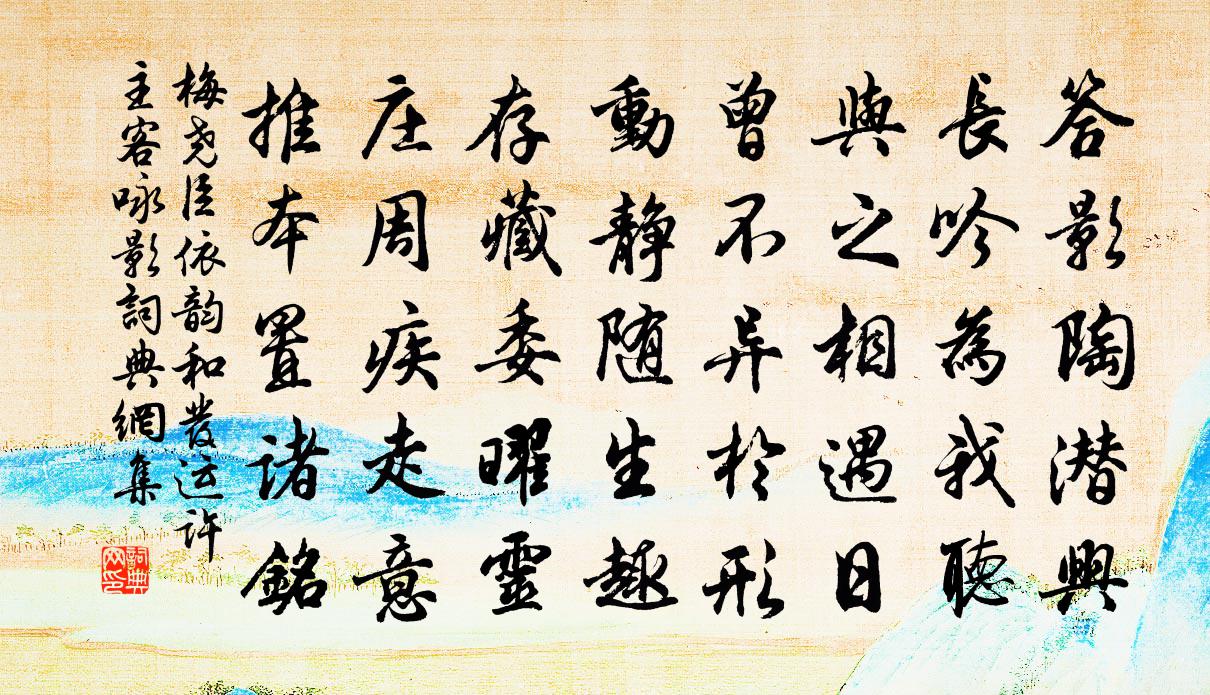 答影陶潜興
長吟為我聽
與之相遇日
曾不异於形
動静随生趣
存藏委曜靈
庄周疾走意
推本置諸銘
梅尧臣依韵和發运许
主客咏影詞典網集
詞典网印